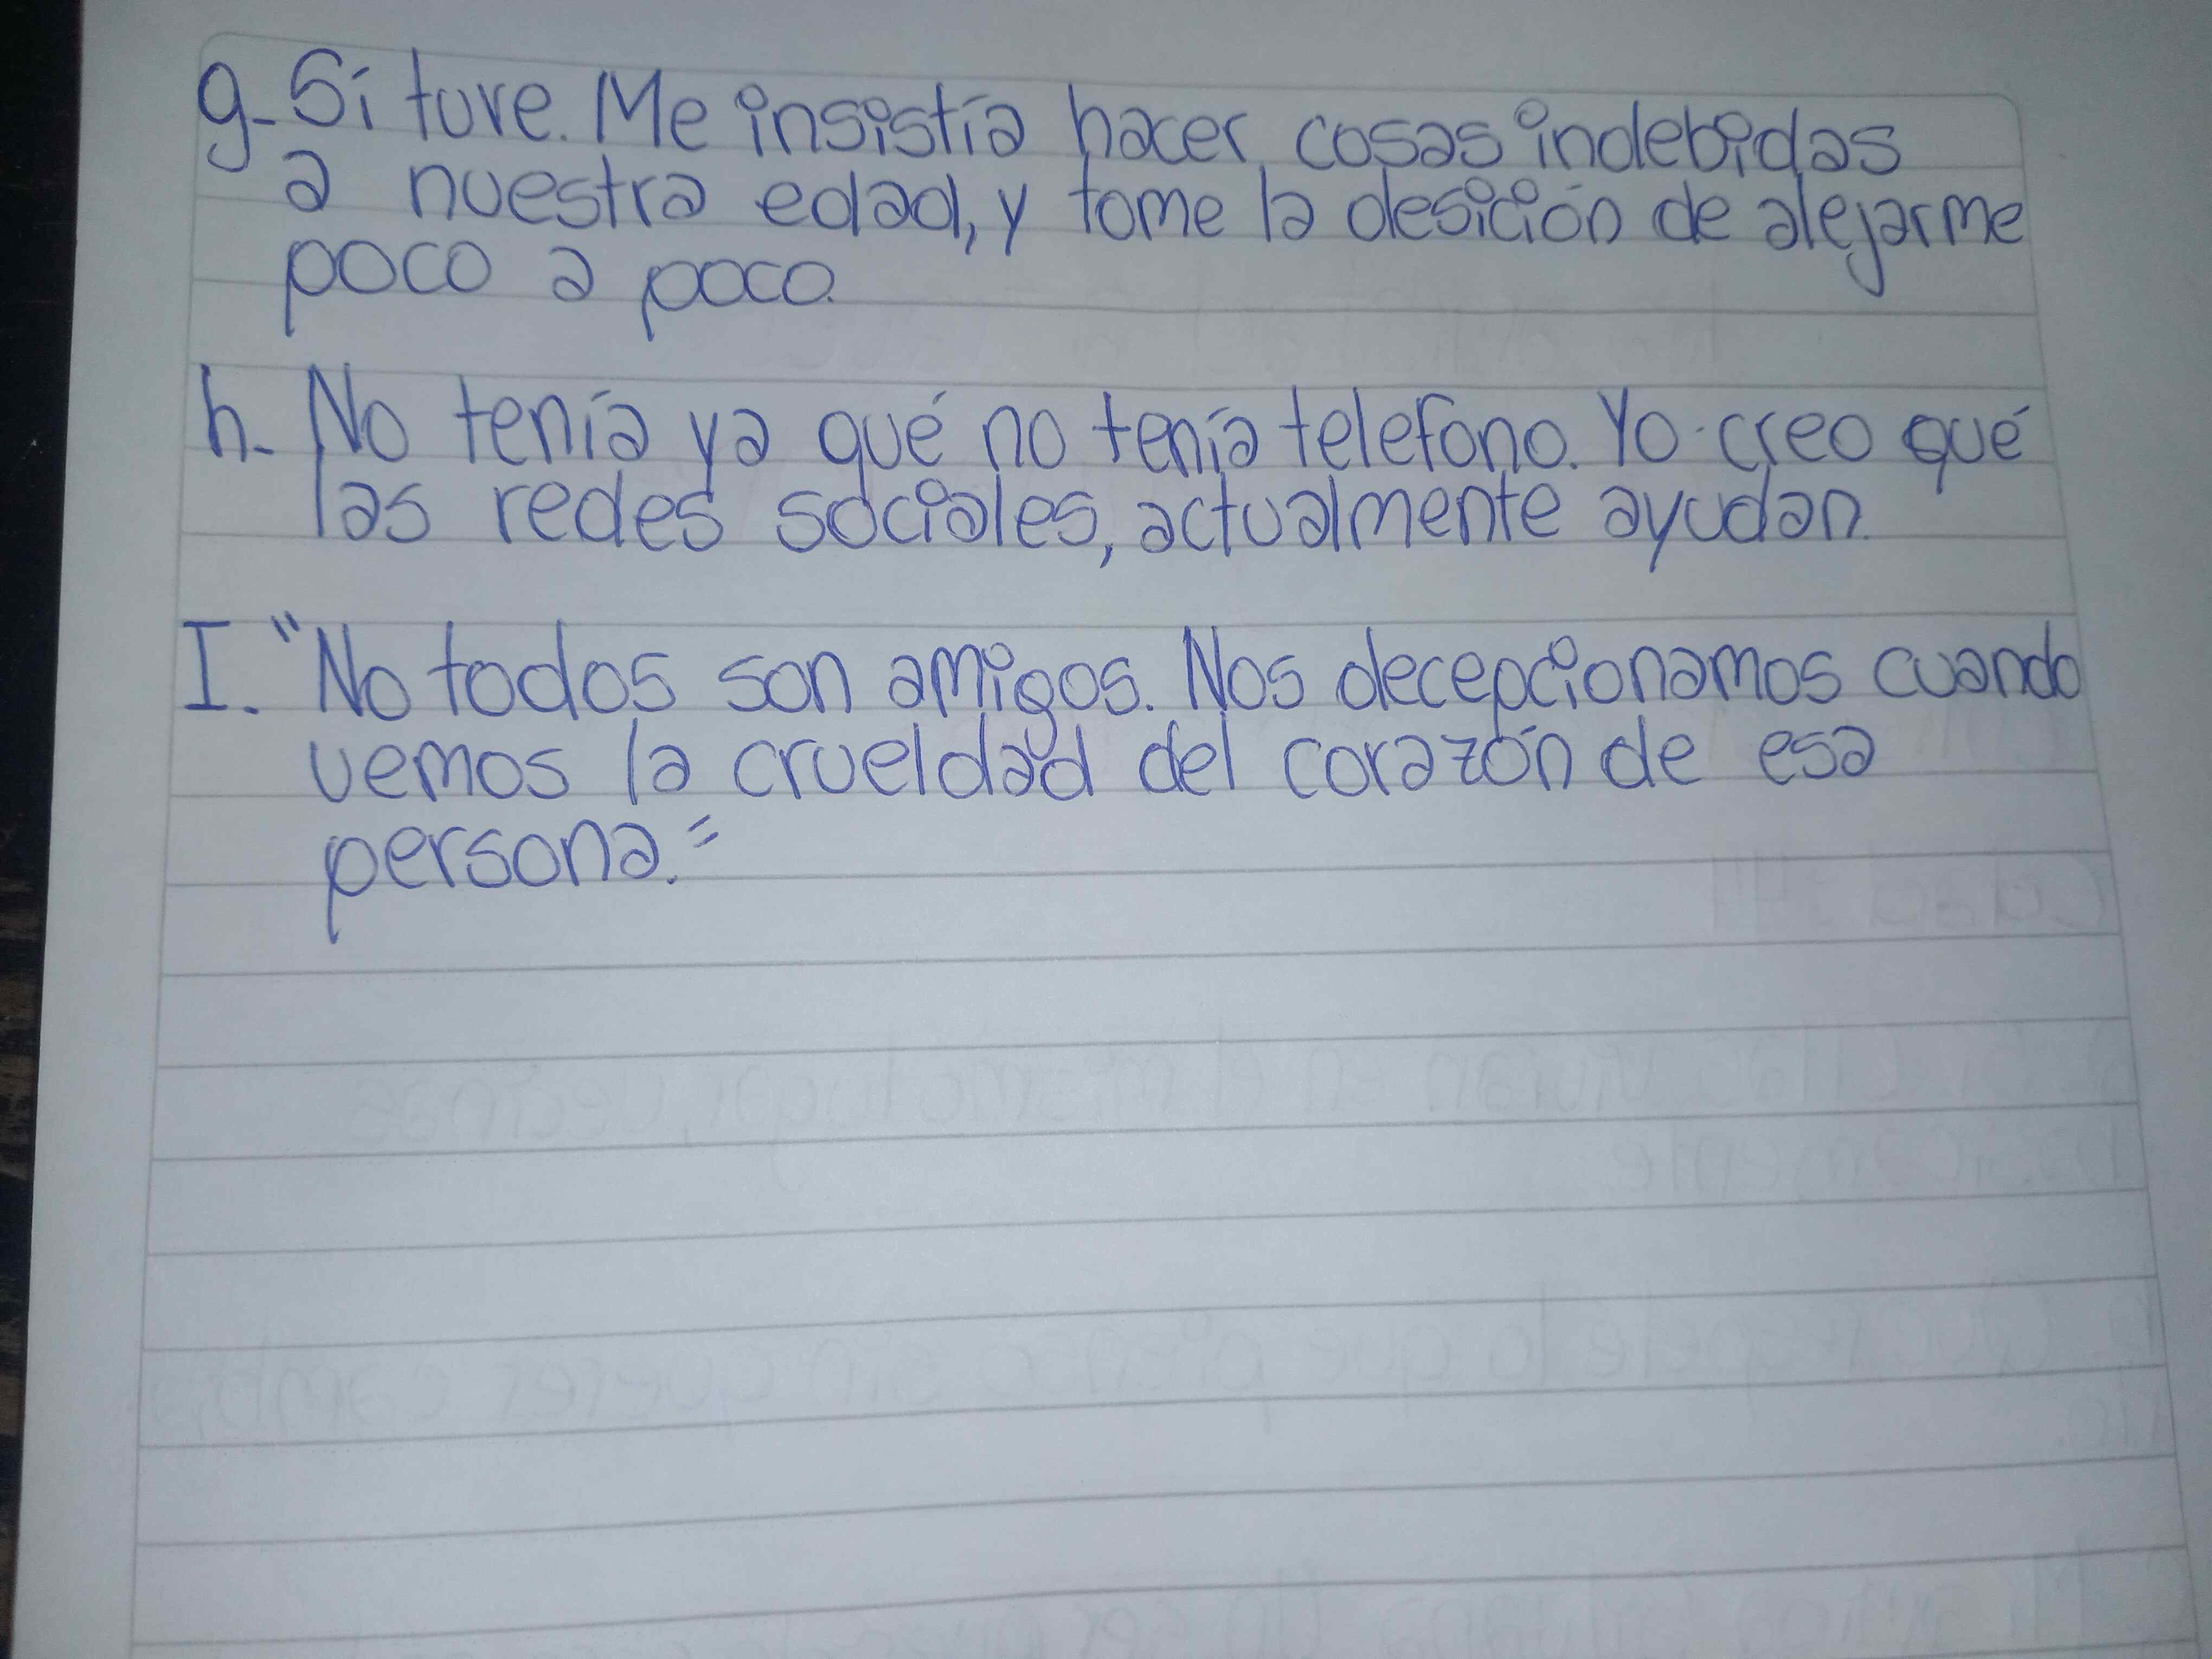 g- Sí tuve. Me insistía hacer cosas indebidas
a nuestra edad, y tome la desición de alejarme
poco a poco.
h- No tenía ya qué no tenía telefono. Yo creo qué
las redes sociales, actualmente ayudan.
I. "No todos son amigos. Nos decepcionamos cuando
vemos la crueldad del corazón de esa
persona."